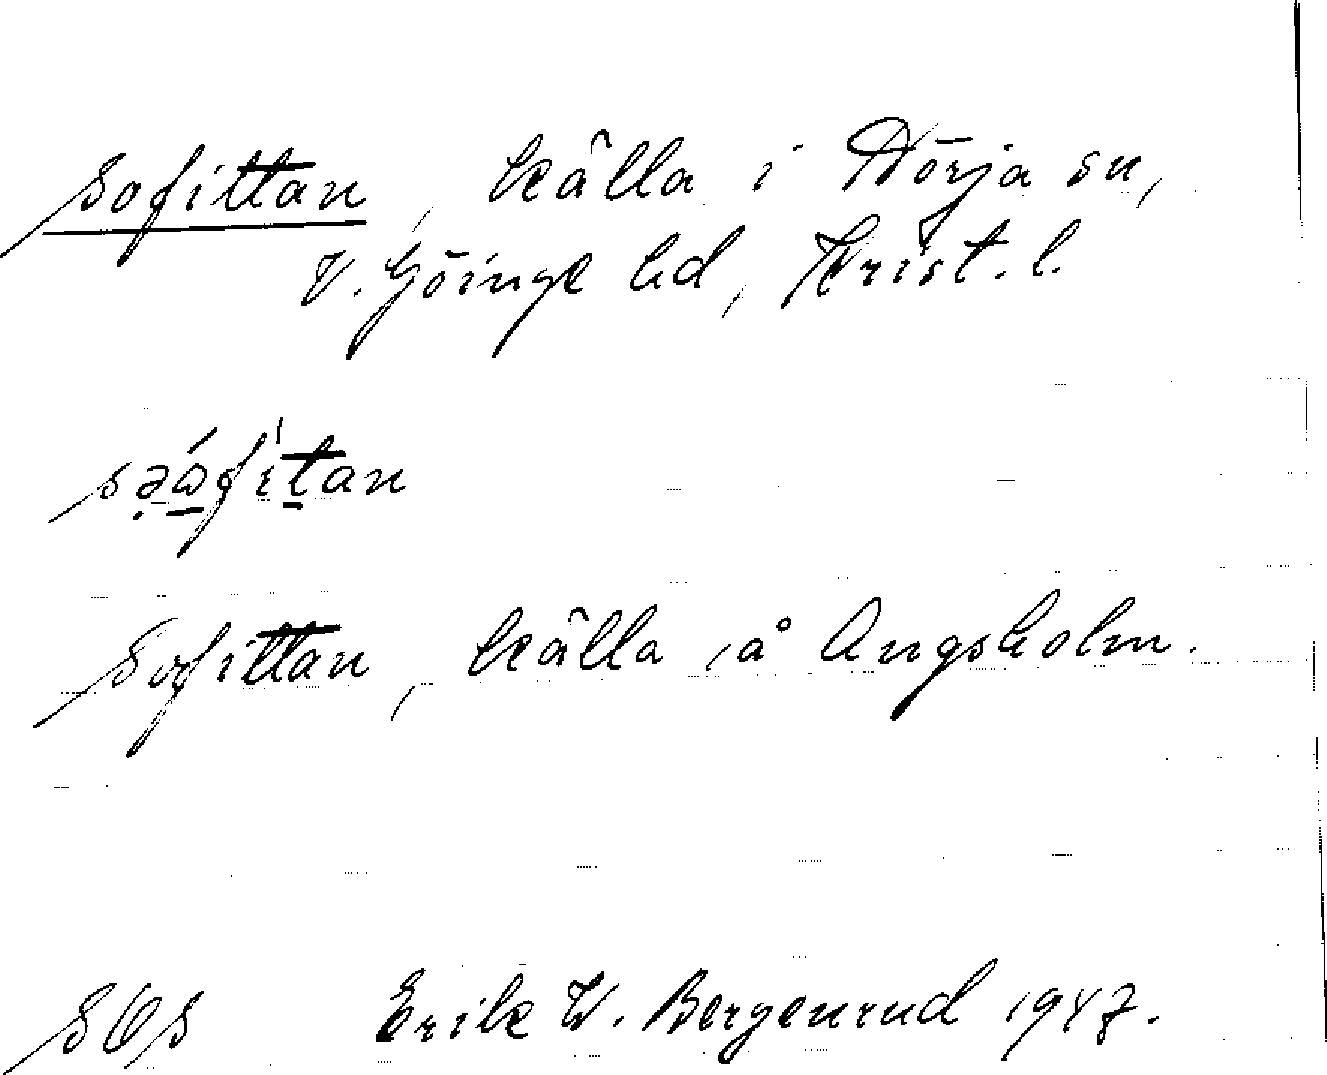 Sofittan, källa i Nörja sn,
V. Göinge hd, Krist. l.
Sofittan, källa å Ängsholm.
SOS Erik W. Bergenrud 1947.